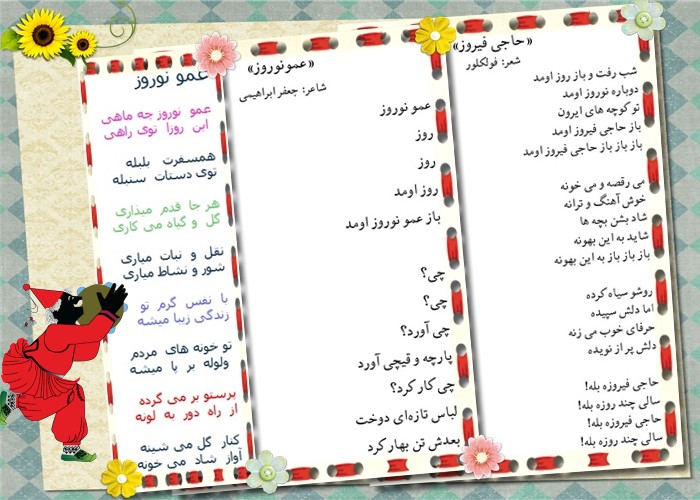 «حاجی فیروز»
شعر: فولکلور
شب رفت و باز روز اومد
دوباره نوروز اومد
تو کوچه های ایرون
باز حاجی فیروز اومد
باز باز باز حاجی فیروز اومد
می رقصه و می خونه
خوش آهنگ و ترانه
شاد بشن بچه ها
شاید به این بهونه
باز باز باز به این بهونه
روشو سیاه کرده
اما دلش سپیده
حرفای خوب می زنه
دلش پر از نویده
حاجی فیروزه بله!
سالی چند روزه بله!
حاجی فیروزه بله!
سالی چند روزه بله!
«عمونوروز»
شاعر: جعفر ابراهیمی
عمو نوروز
روز
روز
روز اومد
باز عمو نوروز اومد
چی؟
چی؟
چی آورد؟
پارچه و قیچی آورد
چی کار کرد؟
لباس تازه‌ای دوخت
بعدش تن بهار کرد
عمو نوروز
عمو نوروز چه ماهی
این روزا توی راهی
همسفرت بلبله
توی دستات سنبله
هر جا قدم میذاری
گل و گیاه می کاری
نقل و نبات میاری
شور و نشاط میاری
با نفس گرم تو
زندگی زیبا میشه
تو خونه های مردم
ولوله بر پا میشه
پرستو بر می گرده
از راه دور به لونه
کنار گل می شینه
آواز شاد می خونه